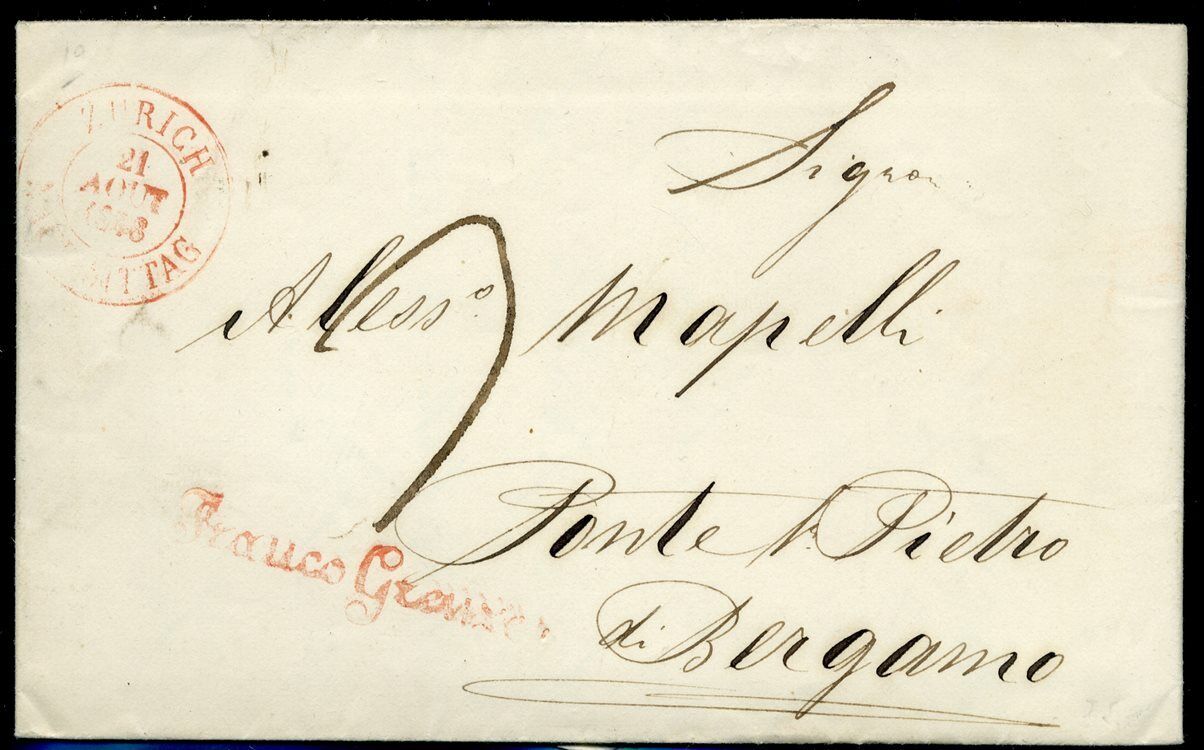 ZURICH
21
AOUT
1848
MITTAG
Signor
Aless.o Mapelli
Ponte S. Pietro
di Bergamo
Franco